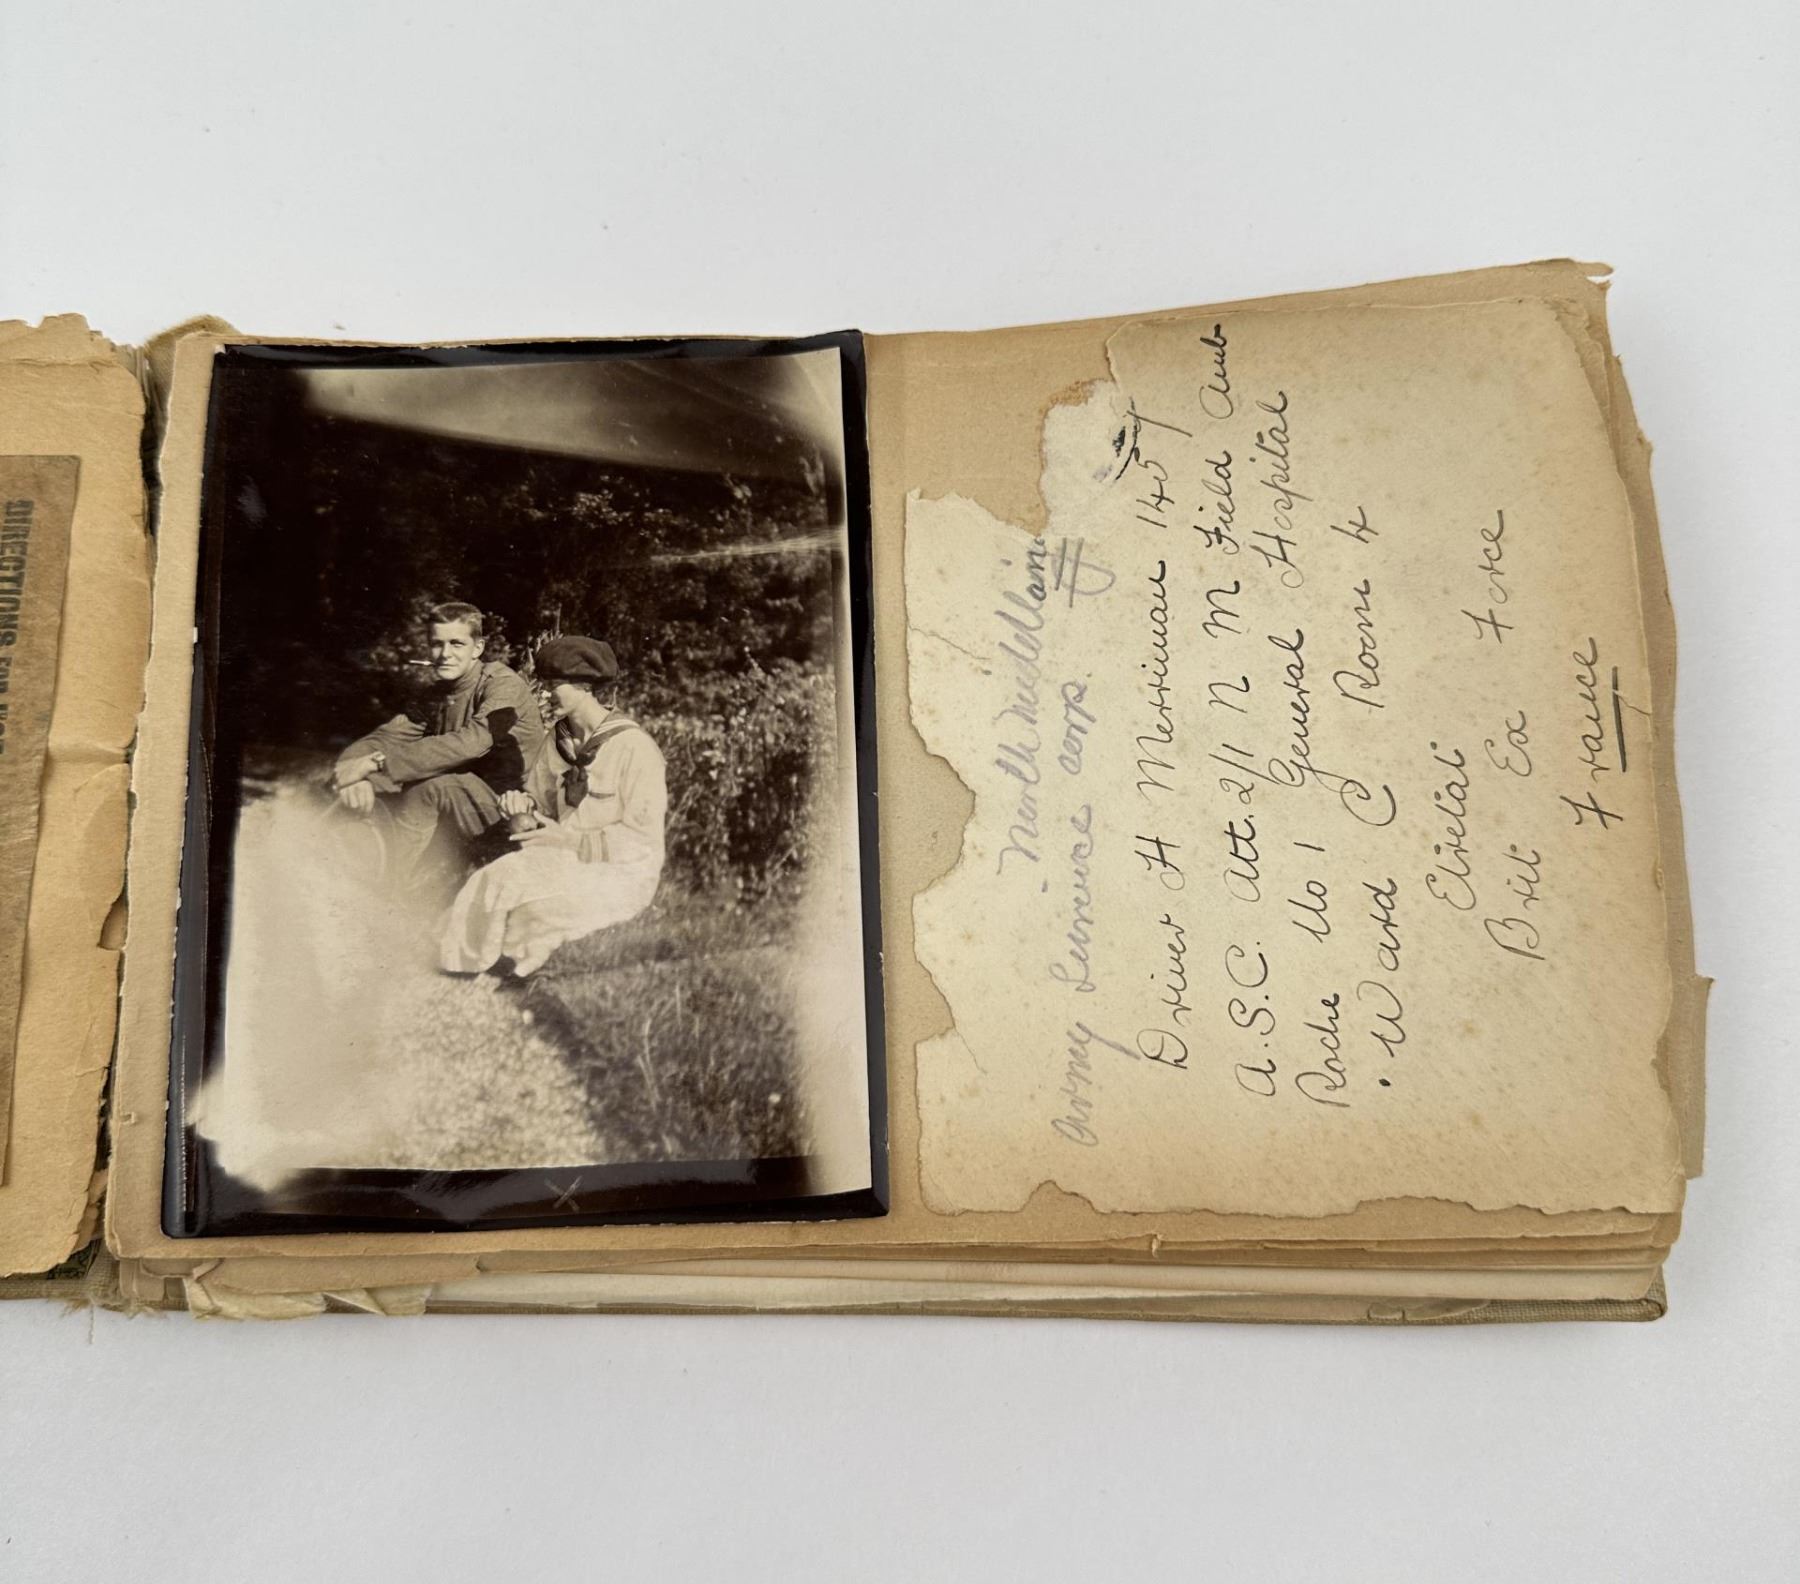 DIRECTIONS FOR
North Midland
Army Service corp.
Driver H Merriman 1457
A.S.C. Att. 2/1 N M Field Amb
Roche No 1 General Hospital
Ward C Room 4
Etretat
Brit Ex Force
France
X